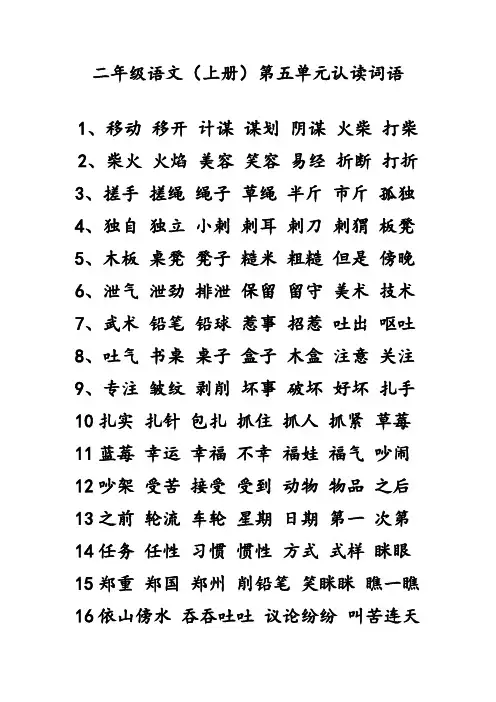 二年级语文（上册）第五单元认读词语
1、移动 移开 计谋 谋划 阴谋 火柴 打柴
2、柴火 火焰 美容 笑容 易经 折断 打折
3、搓手 搓绳 绳子 草绳 半斤 市斤 孤独
4、独自 独立 小刺 刺耳 刺刀 刺猬 板凳
5、木板 桌凳 凳子 糙米 粗糙 但是 傍晚
6、泄气 泄劲 排泄 保留 留守 美术 技术
7、武术 铅笔 铅球 惹事 招惹 吐出 呕吐
8、吐气 书桌 桌子 盒子 木盒 注意 关注
9、专注 皱纹 剥削 坏事 破坏 好坏 扎手
10扎实 扎针 包扎 抓住 抓人 抓紧 草莓
11蓝莓 幸运 幸福 不幸 福娃 福气 吵闹
12吵架 受苦 接受 受到 动物 物品 之后
13之前 轮流 车轮 星期 日期 第一 次第
14任务 任性 习惯 惯性 方式 式样 眯眼
15郑重 郑国 郑州 削铅笔 笑眯眯 瞧一瞧
16依山傍水 吞吞吐吐 议论纷纷 叫苦连天